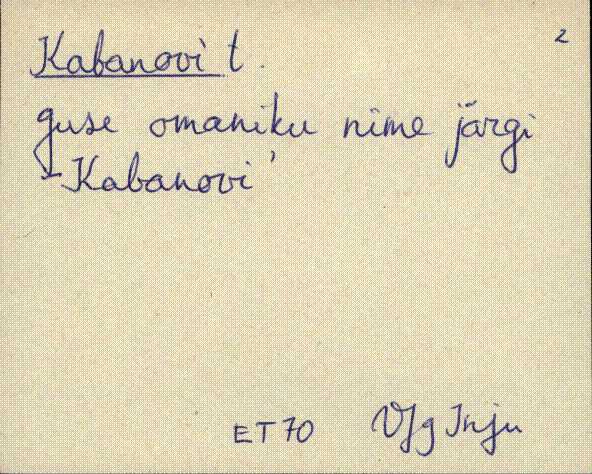 Kabanovi t. 2
guse omaniku nime järgi
"Kabanovi"
ET 70 VJg Inju